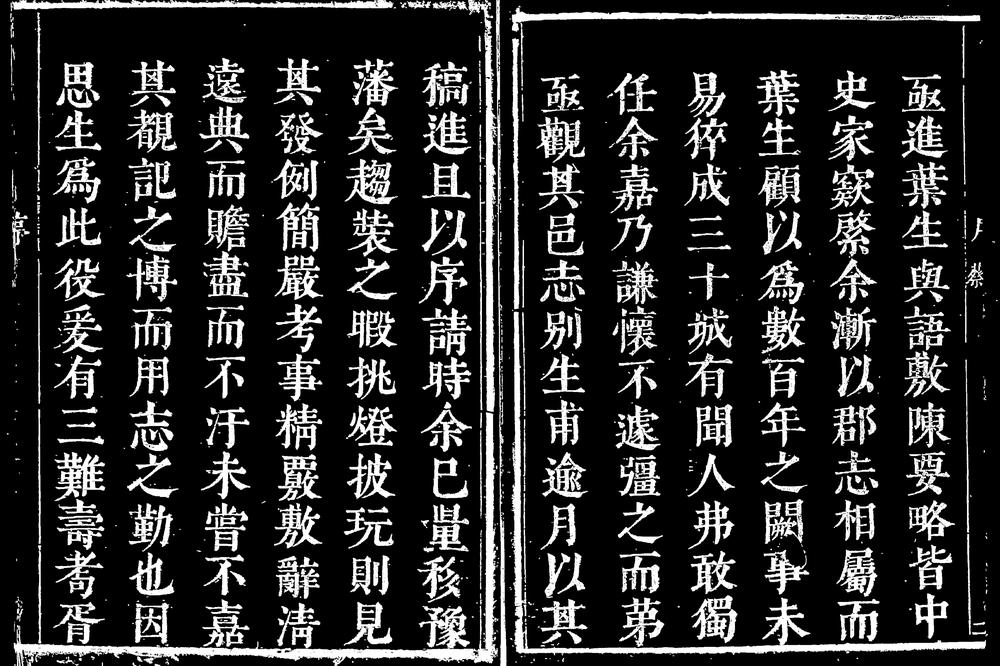 亟進葉生與語敷陳要略皆中
史家窾綮余漸以郡志相屬而
葉生顧以爲數百年之闕事未
易猝成三十城有聞人弗敢獨
任余嘉乃謙懷不遽彊之而苐
亟觀其邑志别生甫逾月以其
稿進且以序請時余巳量移豫
藩矣趨裝之暇挑燈披玩則見
其發例簡嚴考事精覈敷辭清
遠典而贍盡而不汙未嘗不嘉
其覩記之博而用志之勤也因
思生爲此役爰有三難壽耇胥
序